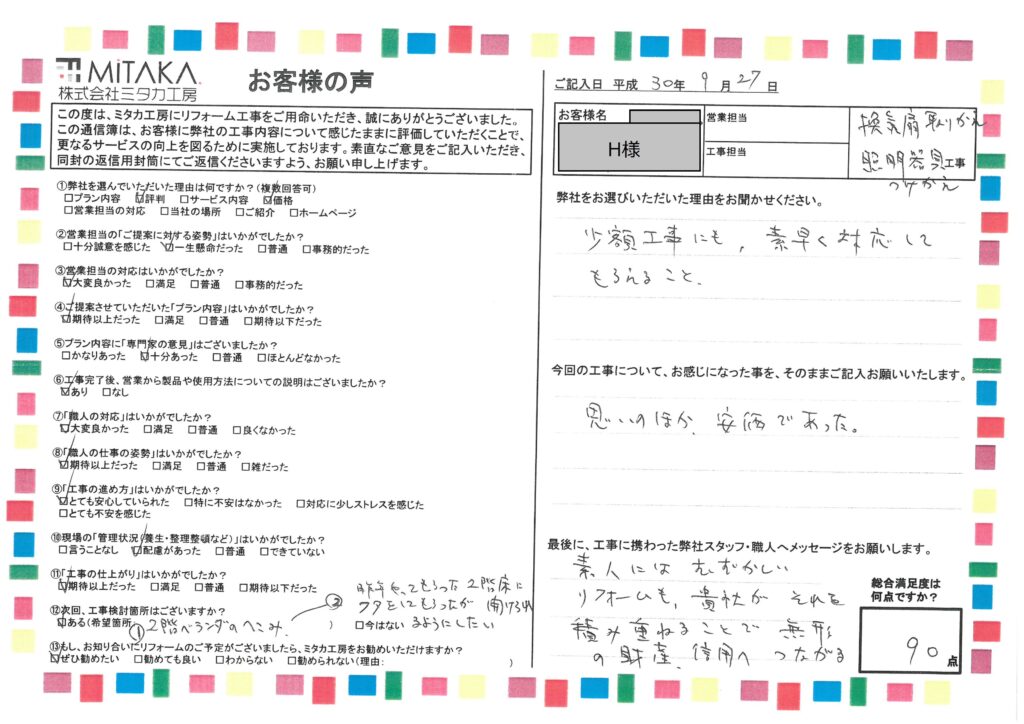 MiTAKA
株式会社ミタカ工房
お客様の声
この度は、ミタカ工房にリフォーム工事をご用命いただき、誠にありがとうございました。
この通信簿は、お客様に弊社の工事内容について感じたままに評価していただくことで、
更なるサービスの向上を図るために実施しております。素直なご意見をご記入いただき、
同封の返信用封筒にてご返信くださいますよう、お願い申し上げます。
①弊社を選んでいただいた理由は何ですか？(複数回答可)
□プラン内容 ☑評判 □サービス内容 ☑価格
□営業担当の対応 □当社の場所 □ご紹介 □ホームページ
②営業担当の「ご提案に対する姿勢」はいかがでしたか？
□十分誠意を感じた ☑一生懸命だった □普通 □事務的だった
③営業担当の対応はいかがでしたか？
☑大変良かった □満足 □普通 □事務的だった
④ご提案させていただいた「プラン内容」はいかがでしたか？
☑期待以上だった □満足 □普通 □期待以下だった
⑤プラン内容に「専門家の意見」はございましたか？
□かなりあった ☑十分あった □普通 □ほとんどなかった
⑥工事完了後、営業から製品や使用方法についての説明はございましたか？
☑あり □なし
⑦「職人の対応」はいかがでしたか？
☑大変良かった □満足 □普通 □良くなかった
⑧「職人の仕事の姿勢」はいかがでしたか？
☑期待以上だった □満足 □普通 □雑だった
⑨「工事の進め方」はいかがでしたか？
☑とても安心していられた □特に不安はなかった □対応に少しストレスを感じた
□とても不安を感じた
⑩現場の「管理状況(養生・整理整頓など)」はいかがでしたか？
□言うことなし ☑配慮があった □普通 □できていない
⑪「工事の仕上がり」はいかがでしたか？
☑期待以上だった □満足 □普通 □期待以下だった
⑫次回、工事検討箇所はございますか？
☑ある(希望箇所 ①2階ベランダのへこみ. ) □今はない
②昨年やってもらった2階床に
フタをしてもらったが 開けられ
るようにしたい
⑬もし、お知り合いにリフォームのご予定がございましたら、ミタカ工房をお勧めいただけますか？
☑ぜひ勧めたい □勧めても良い □わからない □勧められない(理由: )
ご記入日 平成 30年 9月 27日
お客様名
H様
営業担当
工事担当
換気扇取りかえ
照明器具工事
つけかえ
弊社をお選びいただいた理由をお聞かせください。
少額工事にも、素早く対応して
もらえること.
今回の工事について、お感じになった事を、そのままご記入お願いいたします。
思いのほか、安価であった。
最後に、工事に携わった弊社スタッフ・職人へメッセージをお願いします。
素人にはむずかしい
リフォームも、貴社が それを
積み重ねることで 無形
の財産、信用へ つながる
総合満足度は
何点ですか？
90点